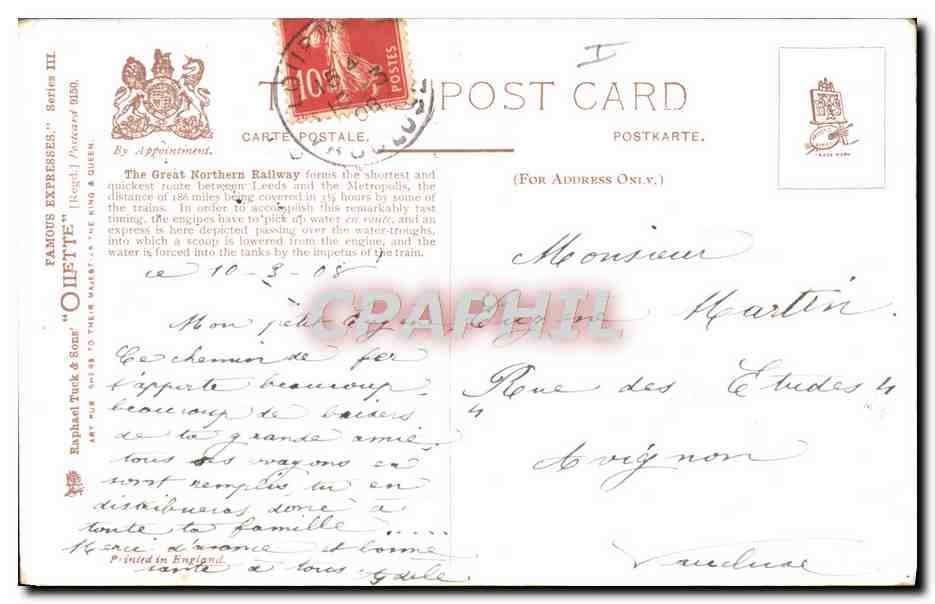 FAMOUS EXPRESSES." Series III.
Raphael Tuck & Sons' "OILETTE" [Regd.] Postcard 9150.
ART PUBLISHERS TO THEIR MAJESTIES THE KING & QUEEN.
By Appointment.
POST CARD
CARTE POSTALE.
POSTKARTE.
10
POSTES
The Great Northern Railway forms the shortest and
quickest route between Leeds and the Metropolis, the
distance of 186 miles being covered in 3½ hours by some of
the trains. In order to accomplish this remarkably fast
timing, the engines have to pick up water en route, and an
express is here depicted passing over the water-troughs,
into which a scoop is lowered from the engine, and the
water is forced into the tanks by the impetus of the train.
(FOR ADDRESS ONLY.)
ce 10-3-08
Mon petit Eugène,
Ce chemin de fer
t'apporte beaucoup
beaucoup de baisers
de ta grande amie.
tous ses wagons en
sont remplis, tu en
distribueras donc à
toute ta famille .....
Merci d'avance et bonne
santé à tous Adèle.
Monsieur
Eugène Martin.
4 Rue des Etudes 4
Avignon
Vaucluse
Printed in England.
CPAPHIL